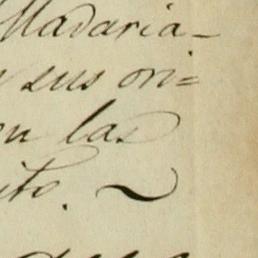 Madaria-
sus ori=
en las
ito.